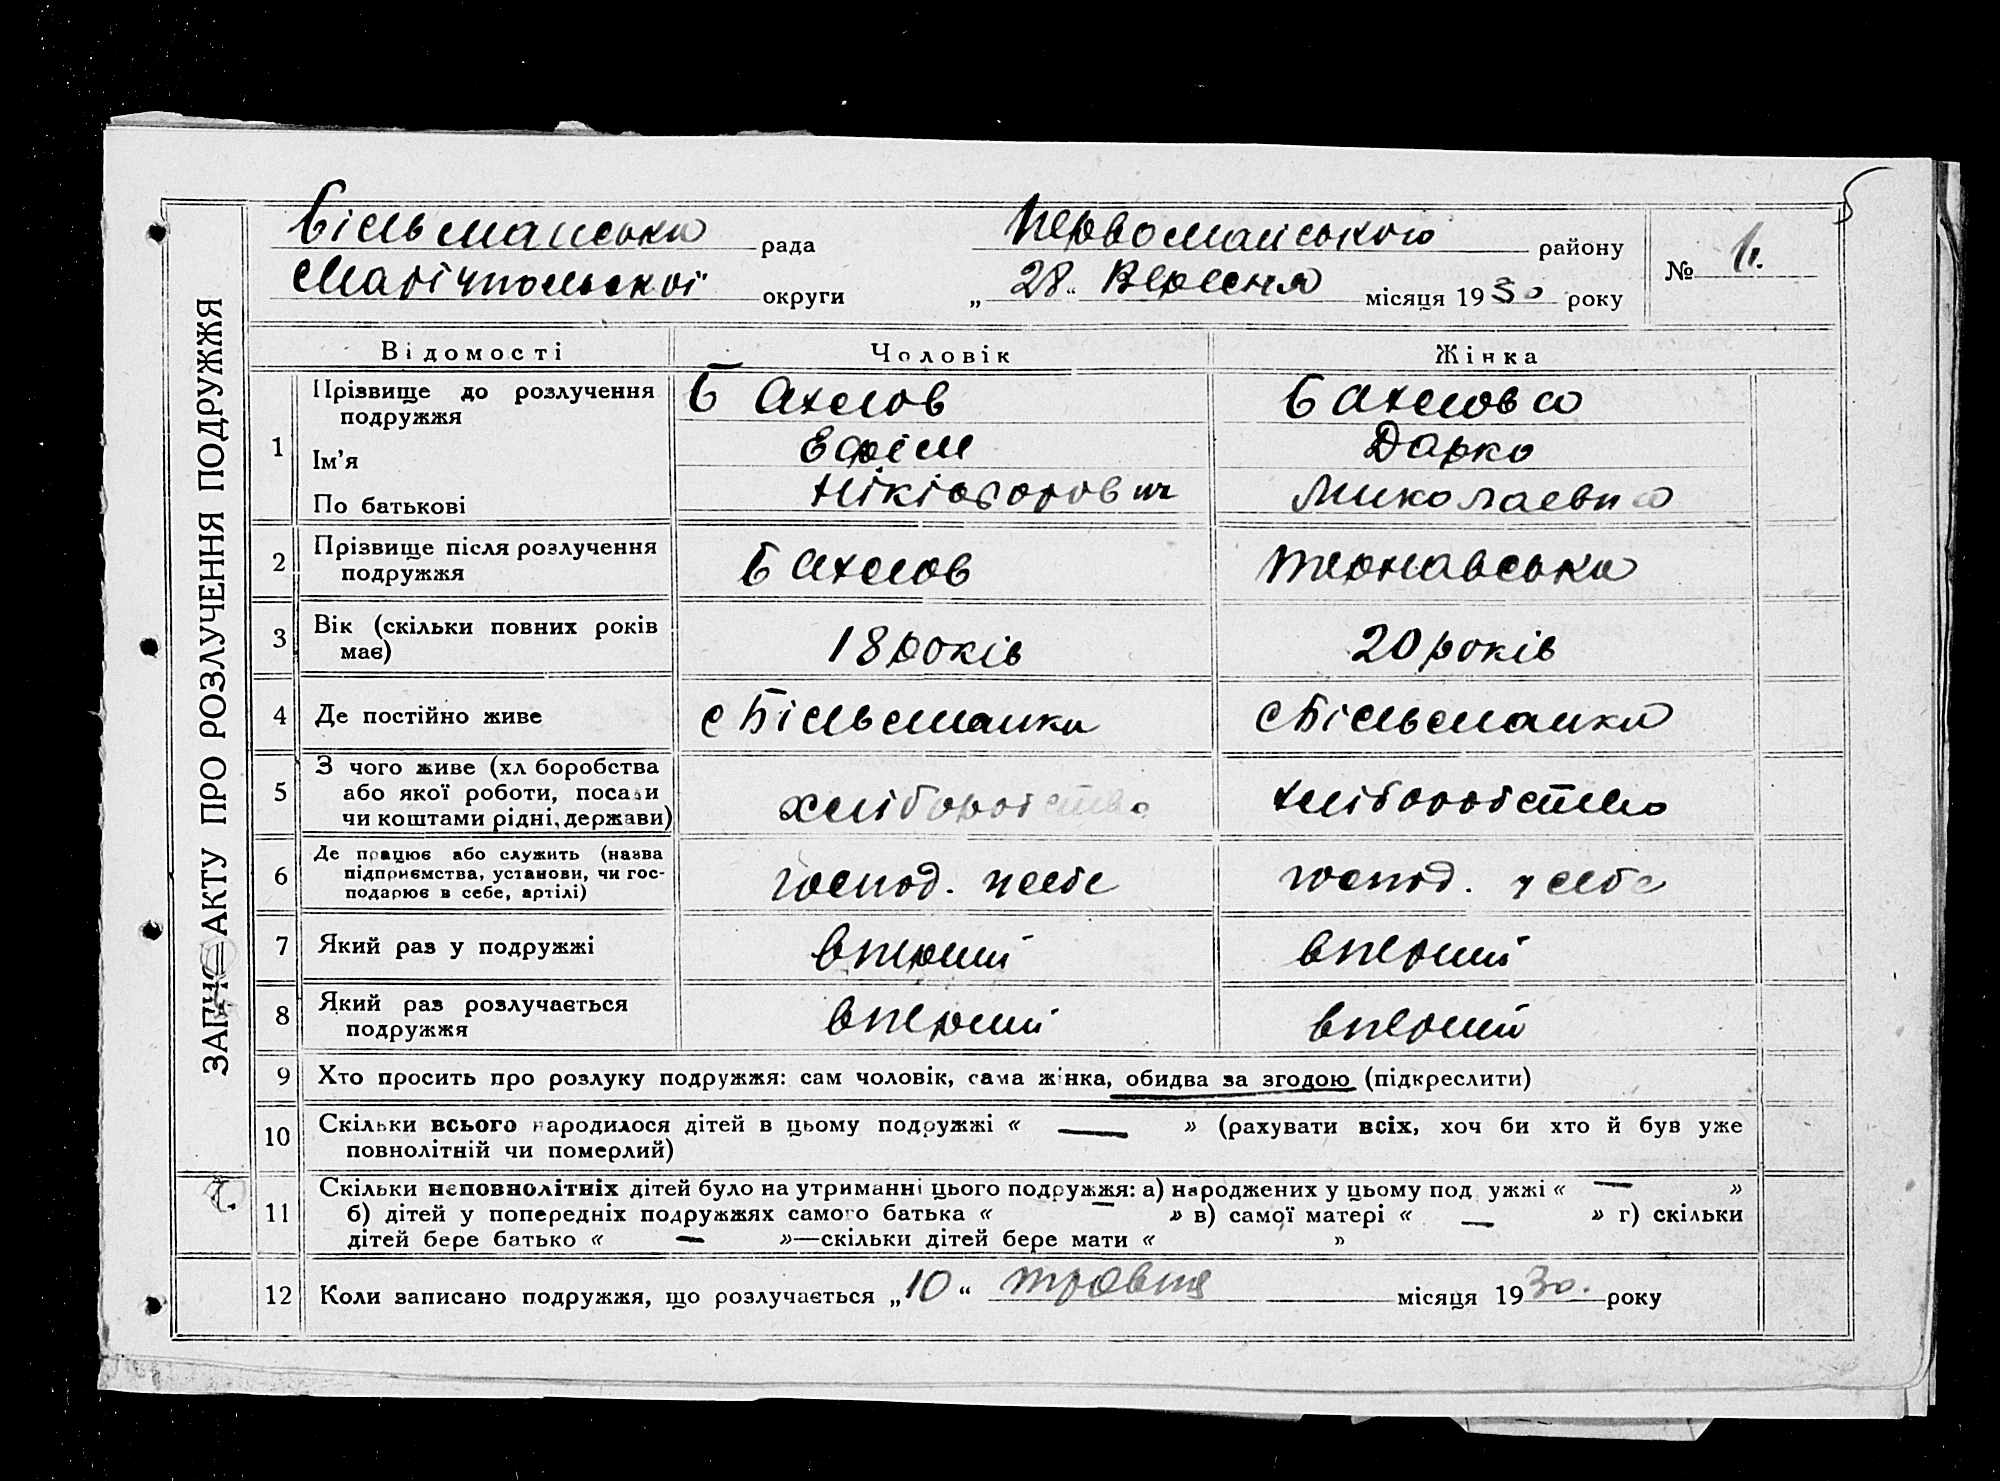 ЗАПИС АКТУ ПРО РОЗЛУЧЕННЯ ПОДРУЖЖЯ
Більманська рада Первомайського району
№ 1.
Маріупольської округи „ 28 “ Вересня місяця 1930 року
Відомості Чоловік Жінка
1 Прізвище до розлучення подружжя Бахлов Бахлова
Ім'я Ефім Дарка
По батькові Нікіфорович Миколаевна
2 Прізвище після розлучення подружжя Бахлов Тернавська
3 Вік (скільки повних років має) 18 років 20 років
4 Де постійно живе с Більманка с Більманка
5 З чого живе (хл боробства
або якої роботи, посади
чи коштами рідні, держави) хліборобство хліборобство
6 Де працює або служить (назва
підприємства, установи, чи гос-
подарює в себе, артілі) господ. у себе господ. у себе
7 Який раз у подружжі вперший вперший
8 Який раз розлучається
подружжя вперший вперший
9 Хто просить про розлуку подружжя: сам чоловік, сама жінка, обидва за згодою (підкреслити)
10 Скільки всього народилося дітей в цьому подружжі « — » (рахувати всіх, хоч би хто й був уже
повнолітній чи померлий)
11 Скільки неповнолітніх дітей було на утриманні цього подружжя: а) народжених у цьому под ужжі « — »
б) дітей у попередніх подружжях самого батька « — » в) самої матері « — » г) скільки
дітей бере батько « — »—скільки дітей бере мати « »
12 Коли записано подружжя, що розлучається „ 10 “ травня місяця 1930. року